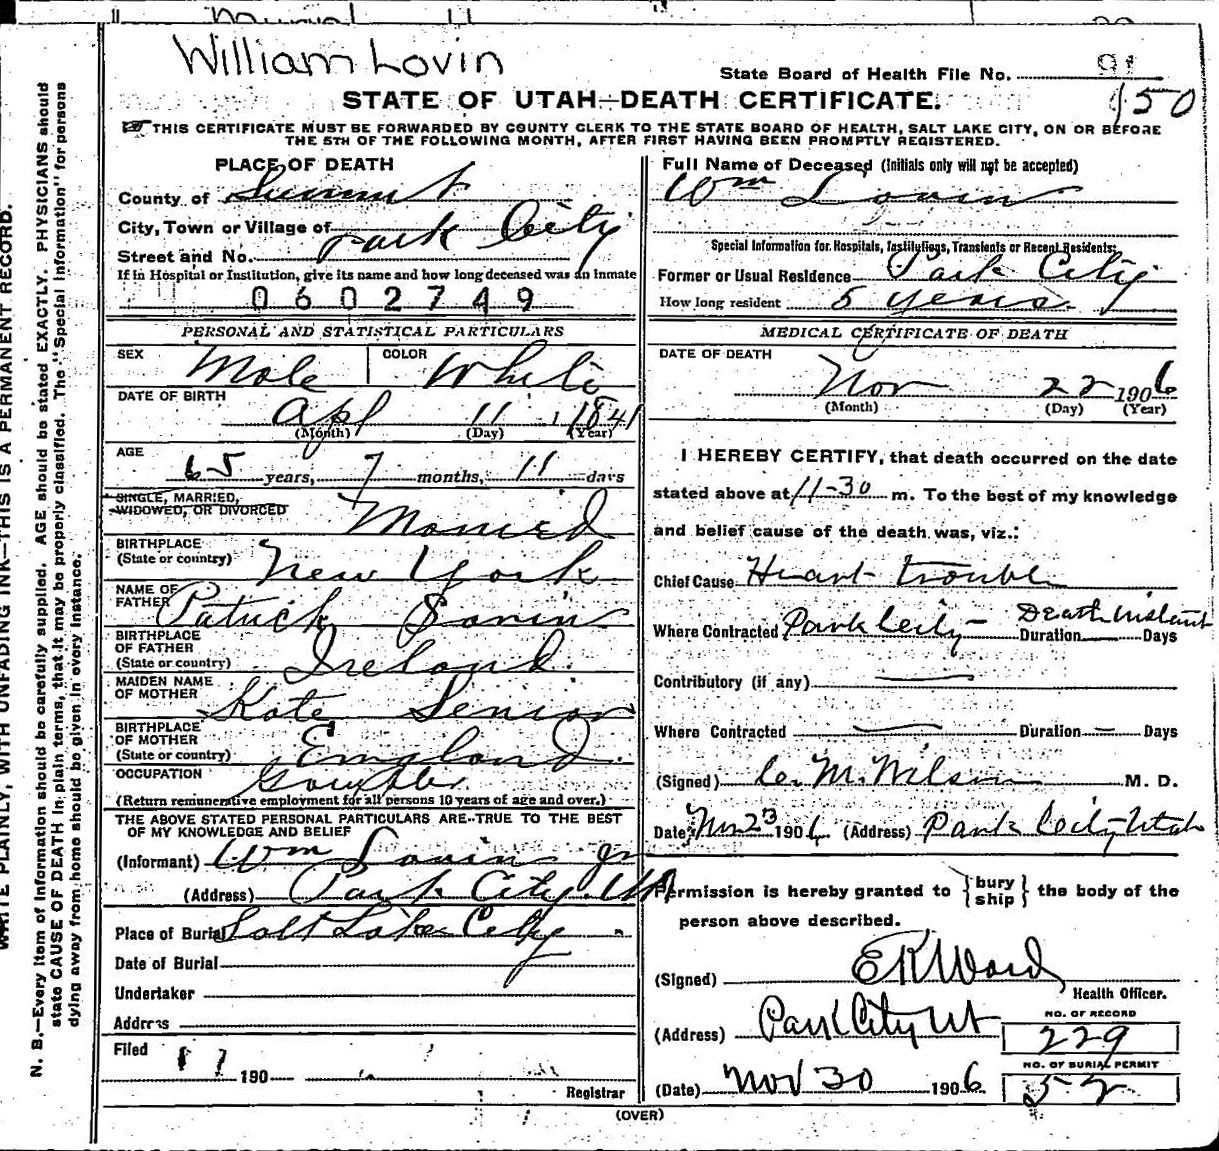 William Lovin
State Board of Health File No. 91
150
STATE OF UTAH—DEATH CERTIFICATE.
THIS CERTIFICATE MUST BE FORWARDED BY COUNTY CLERK TO THE STATE BOARD OF HEALTH, SALT LAKE CITY, ON OR BEFORE
THE 5TH OF THE FOLLOWING MONTH, AFTER FIRST HAVING BEEN PROMPTLY REGISTERED.
PLACE OF DEATH
County of Summit
City, Town or Village of Park City
Street and No.
If in Hospital or Institution, give its name and how long deceased was an inmate
0602749
PERSONAL AND STATISTICAL PARTICULARS
SEX Male COLOR White
DATE OF BIRTH
Apl 11 1841
(Month) (Day) (Year)
AGE
65 years, 7 months, 11 days
SINGLE, MARRIED,
WIDOWED, OR DIVORCED Married
BIRTHPLACE
(State or country) New York
NAME OF
FATHER Patrick Lovin
BIRTHPLACE
OF FATHER
(State or country) Ireland
MAIDEN NAME
OF MOTHER Kate Senior
BIRTHPLACE
OF MOTHER
(State or country) England
OCCUPATION
(Return remunerative employment for all persons 10 years of age and over.)
THE ABOVE STATED PERSONAL PARTICULARS ARE TRUE TO THE BEST
OF MY KNOWLEDGE AND BELIEF
(Informant) Wm Lovin jr
(Address) Park City Ut
Place of Burial Salt Lake City
Date of Burial
Undertaker
Address
Filed
190
Registrar
Full Name of Deceased (Initials only will not be accepted)
Wm Lovin
Special Information for Hospitals, Institutions, Transients or Recent Residents:
Former or Usual Residence Park City
How long resident 5 years
MEDICAL CERTIFICATE OF DEATH
DATE OF DEATH
Nov 22 1906
(Month) (Day) (Year)
I HEREBY CERTIFY, that death occurred on the date
stated above at 11-30 m. To the best of my knowledge
and belief cause of the death was, viz.:
Chief Cause Heart trouble
Where Contracted Park City - Death instant
Duration Days
Contributory (if any) —
Where Contracted — Duration — Days
(Signed) M. Wilson M. D.
Date Nov 23 1906 (Address) Park City Utah
Permission is hereby granted to {bury ship} the body of the
person above described.
(Signed) E R Ward
Health Officer.
(Address) Park City Ut
NO. OF RECORD
229
NO. OF BURIAL PERMIT
52
(Date) Nov 30 1906
(OVER)
WRITE PLAINLY, WITH UNFADING INK—THIS IS A PERMANENT RECORD.
N. B.—Every item of information should be carefully supplied. AGE should be stated EXACTLY. PHYSICIANS should
state CAUSE OF DEATH in plain terms, that it may be properly classified. The "Special Information" for persons
dying away from home should be given in every instance.